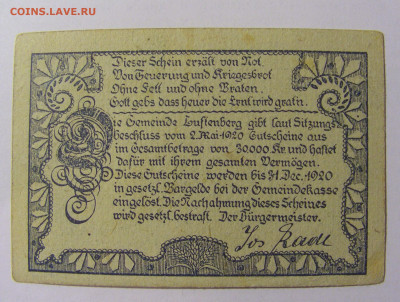 COINS.LAVE.RU
Dieser Schein erzält von Not
Von Teuerung und Kriegesbrot
Ohne Fett und ohne Braten.
Gott gebs dass heuer die Ernt wird gratin.
Die Gemeinde Luftenberg gibt laut Sitzungs=
beschluss vom 2.Mai 1920 Gutscheine aus
im Gesamtbetrage von 30000 Kr. und haftet
dafür mit ihrem gesamten Vermögen.
Diese Gutscheine werden bis 31 Dec. 1920
in gesetzl. Bargelde bei der Gemeindekasse
eingelöst. Die Nachahmung dieses Scheines
wird gesetzl. bestraft. Der Bürgermeister.
Jos